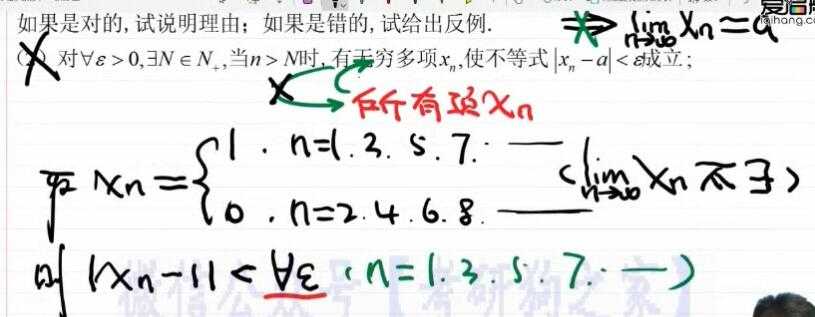 如果是对的,试说明理由;如果是错的,试给出反例.
⇒ lim n→∞ xn=a
(2) 对∀ε>0,∃N∈N+,当n>N时,有无穷多项xn,使不等式|xn-a|<ε成立;
所有项xn
取 xn={1, n=1.3.5.7.—
0, n=2.4.6.8.—
(lim n→∞ xn 不∃)
则 |xn-1|<∀ε (n=1.3.5.7.—)
微信公众号【考研狗之家】